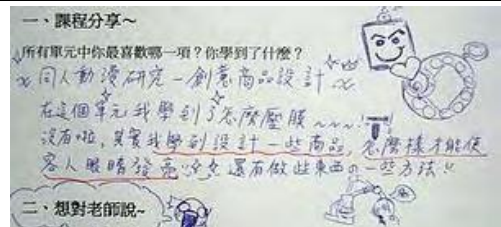 一、課程分享~
所有單元中你最喜歡哪一項?你學到了什麼?
同人動漫研究-創意商品設計
在這個單元我學到了怎麼壓膜~~~!
沒有啦,其實我學到設計一些商品,怎麼樣才能使
客人眼睛發亮 還有做些東西の一些方法!!
二、想對老師說~